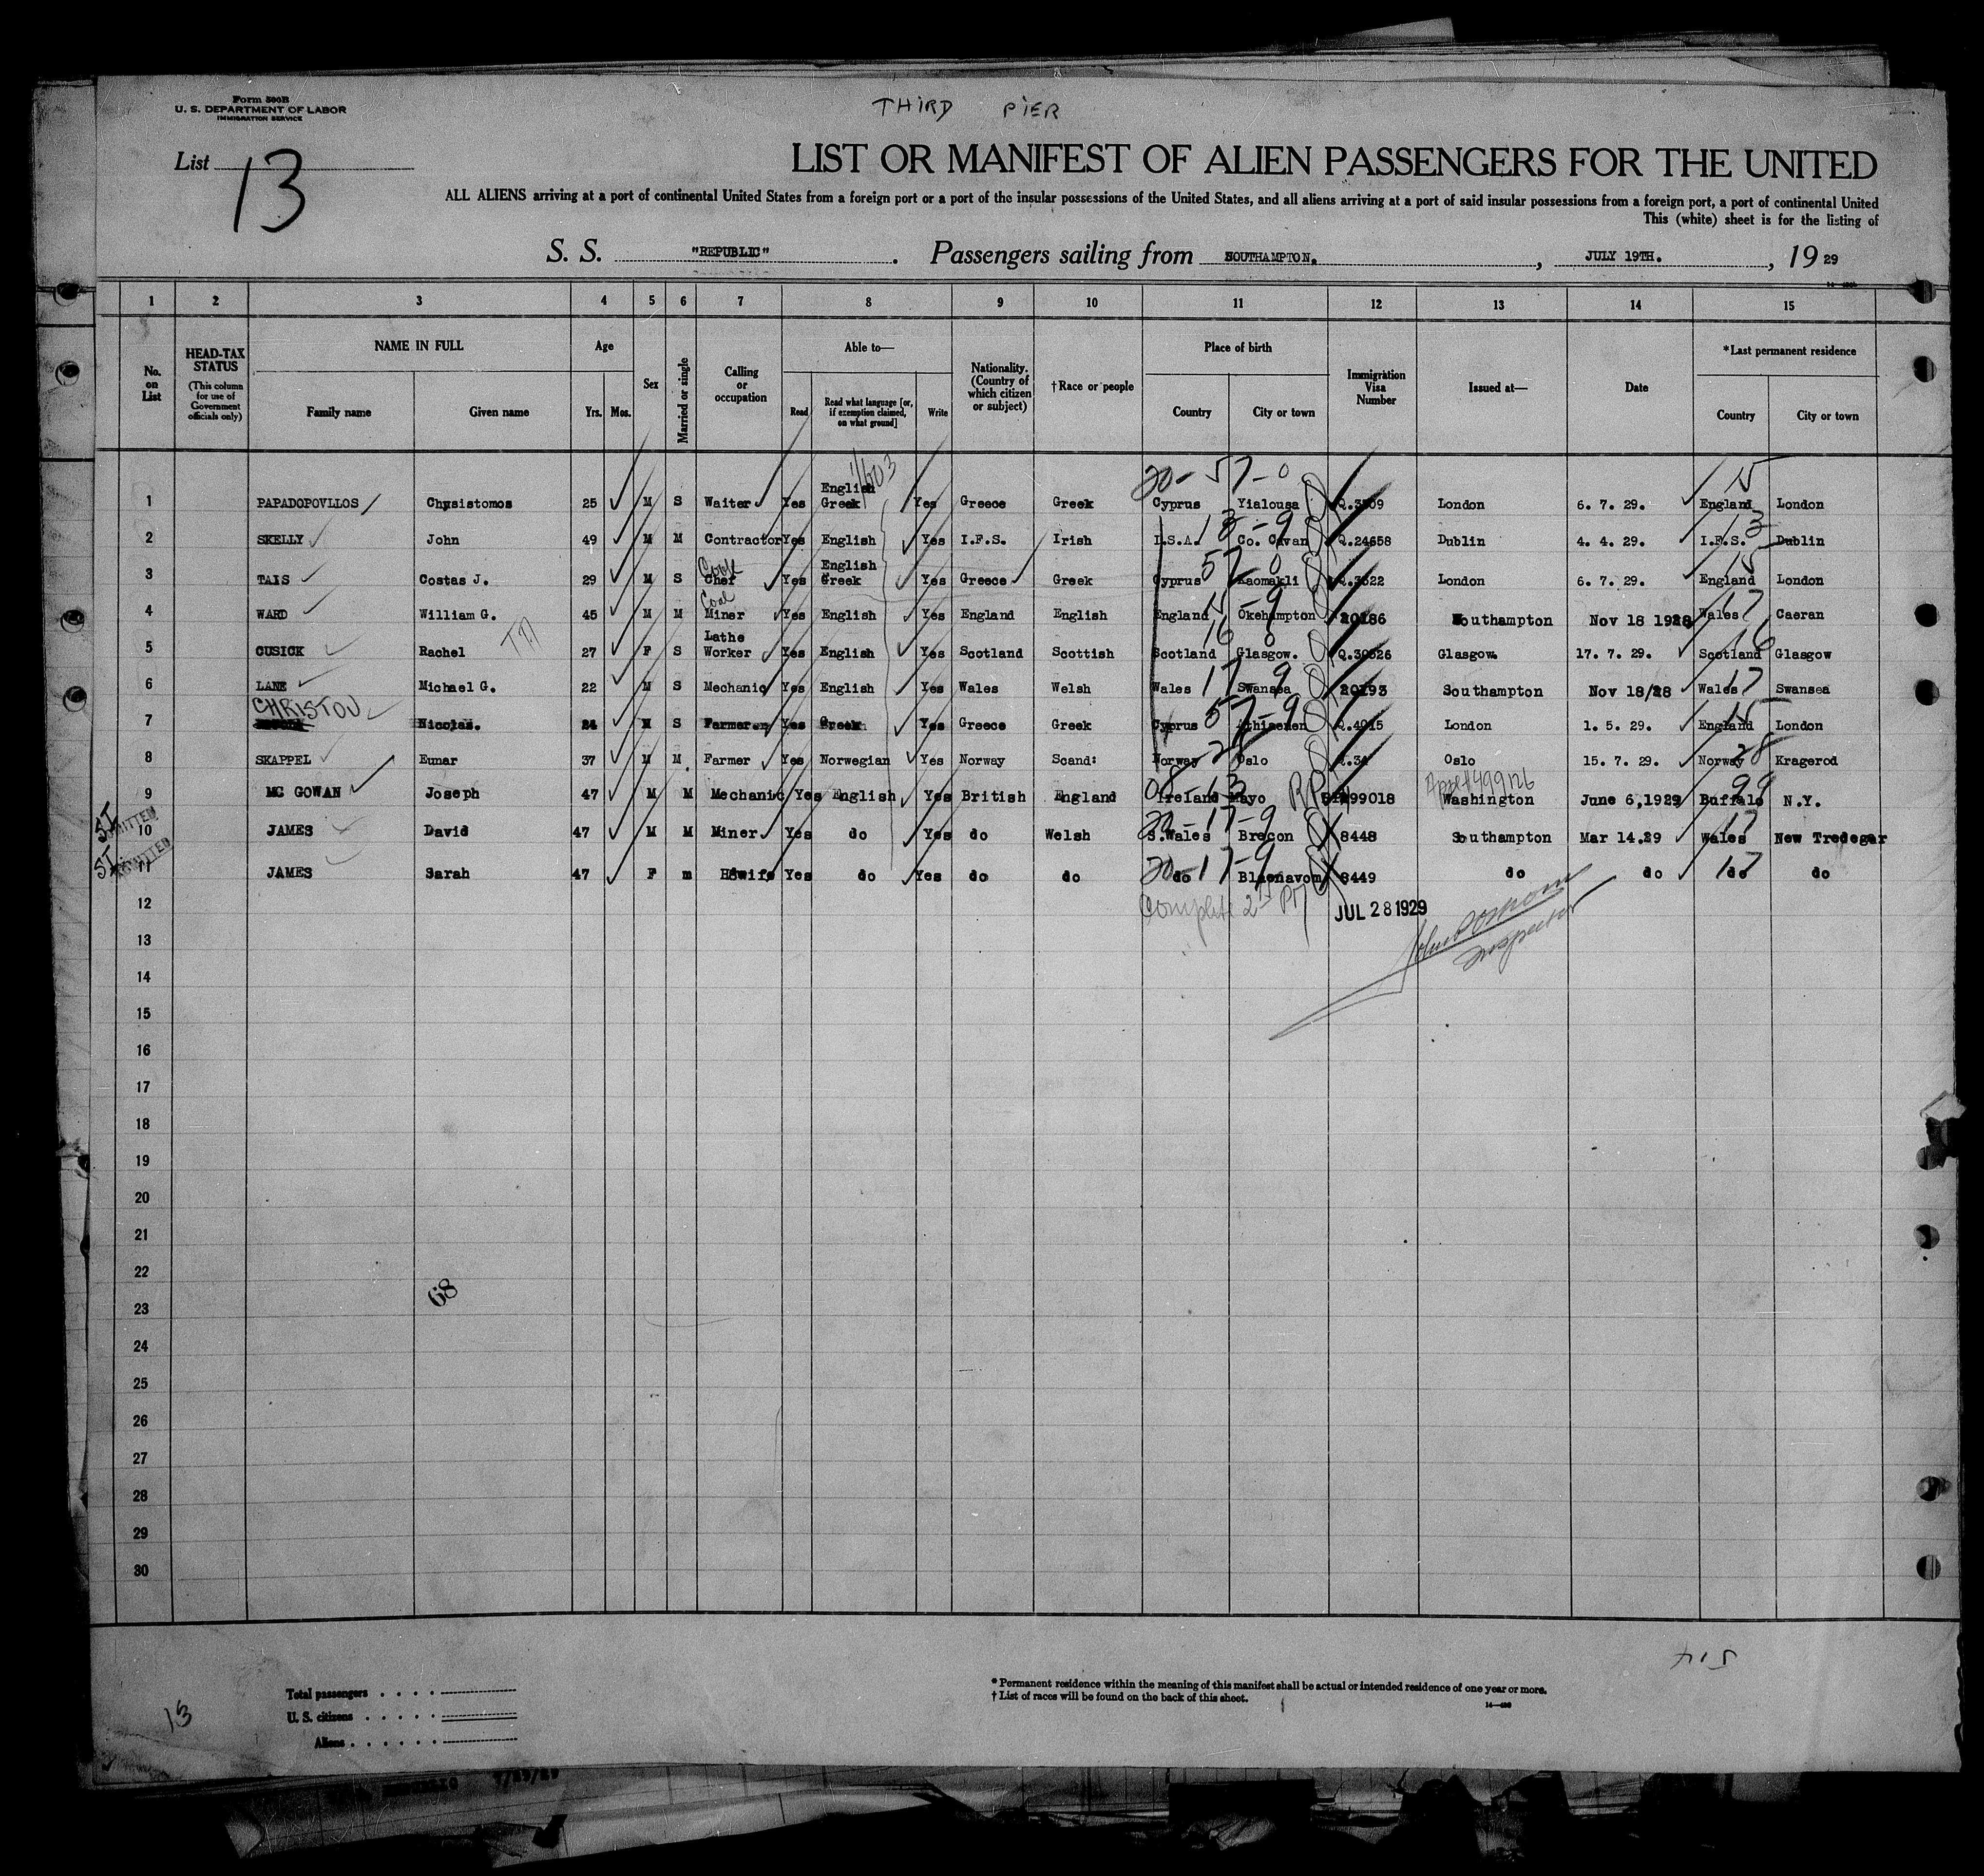 Form 500B
U. S. DEPARTMENT OF LABOR
IMMIGRATION SERVICE
THIRD PIER
List 13
LIST OR MANIFEST OF ALIEN PASSENGERS FOR THE UNITED
ALL ALIENS arriving at a port of continental United States from a foreign port or a port of the insular possessions of the United States, and all aliens arriving at a port of said insular possessions from a foreign port, a port of continental United
This (white) sheet is for the listing of
S. S. "REPUBLIC". Passengers sailing from SOUTHAMPTON., JULY 19TH., 19 29
1 2 3 4 5 6 7 8 9 10 11 12 13 14 15
No. on List
HEAD-TAX STATUS (This column for use of Government officials only)
NAME IN FULL
Family name Given name
Age
Yrs. Mos.
Sex
Married or single
Calling or occupation
Able to—
Read
Read what language [or, if exemption claimed, on what ground]
Write
Nationality. (Country of which citizen or subject)
†Race or people
Place of birth
Country City or town
Immigration Visa Number
Issued at—
Date
*Last permanent residence
Country City or town
1603
20-57-0 15
1 PAPADOPOVLLOS Chysistomos 25 M S Waiter Yes English Greek Yes Greece Greek Cyprus Yialousa Q.3509 London 6. 7. 29. England London
2 SKELLY John 49 M M Contractor Yes English Yes I.F.S. Irish I.S.A. Co. Cavan Q.24658 Dublin 4. 4. 29. I.F.S. Dublin
13-9 13
3 TAIS Costas J. 29 M S Cook Chef Yes English Greek Yes Greece Greek Cyprus Kaomakli Q.3522 London 6. 7. 29. England London
57 0 15
4 WARD William G. 45 M M Coal Miner Yes English Yes England English England Okehampton 20186 Southampton Nov 18 1928 Wales Caeran
15-9 17
5 CUSICK Rachel 27 F S Lathe Worker Yes English Yes Scotland Scottish Scotland Glasgow. Q.30526 Glasgow. 17. 7. 29. Scotland Glasgow
16 0 16
6 LANE Michael G. 22 M S Mechanic Yes English Yes Wales Welsh Wales Swansea 20193 Southampton Nov 18/28 Wales Swansea
17 9 17
7 CHRISTOU Nicolas. 24 M S Farmer Yes Greek Yes Greece Greek Cyprus Q.4015 London 1. 5. 29. England London
57-9 15
8 SKAPPEL Eunar 37 M M. Farmer Yes Norwegian Yes Norway Scand: Norway Oslo Q.34 Oslo 15. 7. 29. Norway Kragerod
28 28
9 MC GOWAN Joseph 47 M M Mechanic Yes English Yes British England Ireland Mayo RP 499018 Washington June 6,1929 Buffalo N.Y.
08-13 499126 99
SI ADMITTED
10 JAMES David 47 M M Miner Yes do Yes do Welsh S.Wales Brecon 8448 Southampton Mar 14.29 Wales New Tredegar
20-17-9 17
SI ADMITTED
11 JAMES Sarah 47 F m H&wife Yes do Yes do do do Blaenavom 8449 do do do do
20-17-9 17
12 Complete JUL 28 1929
Inspector
13
14
15
16
17
18
19
20
21
22
68
23
24
25
26
27
28
29
30
Total passengers
U. S. citizens
Aliens
13
* Permanent residence within the meaning of this manifest shall be actual or intended residence of one year or more.
† List of races will be found on the back of this sheet.